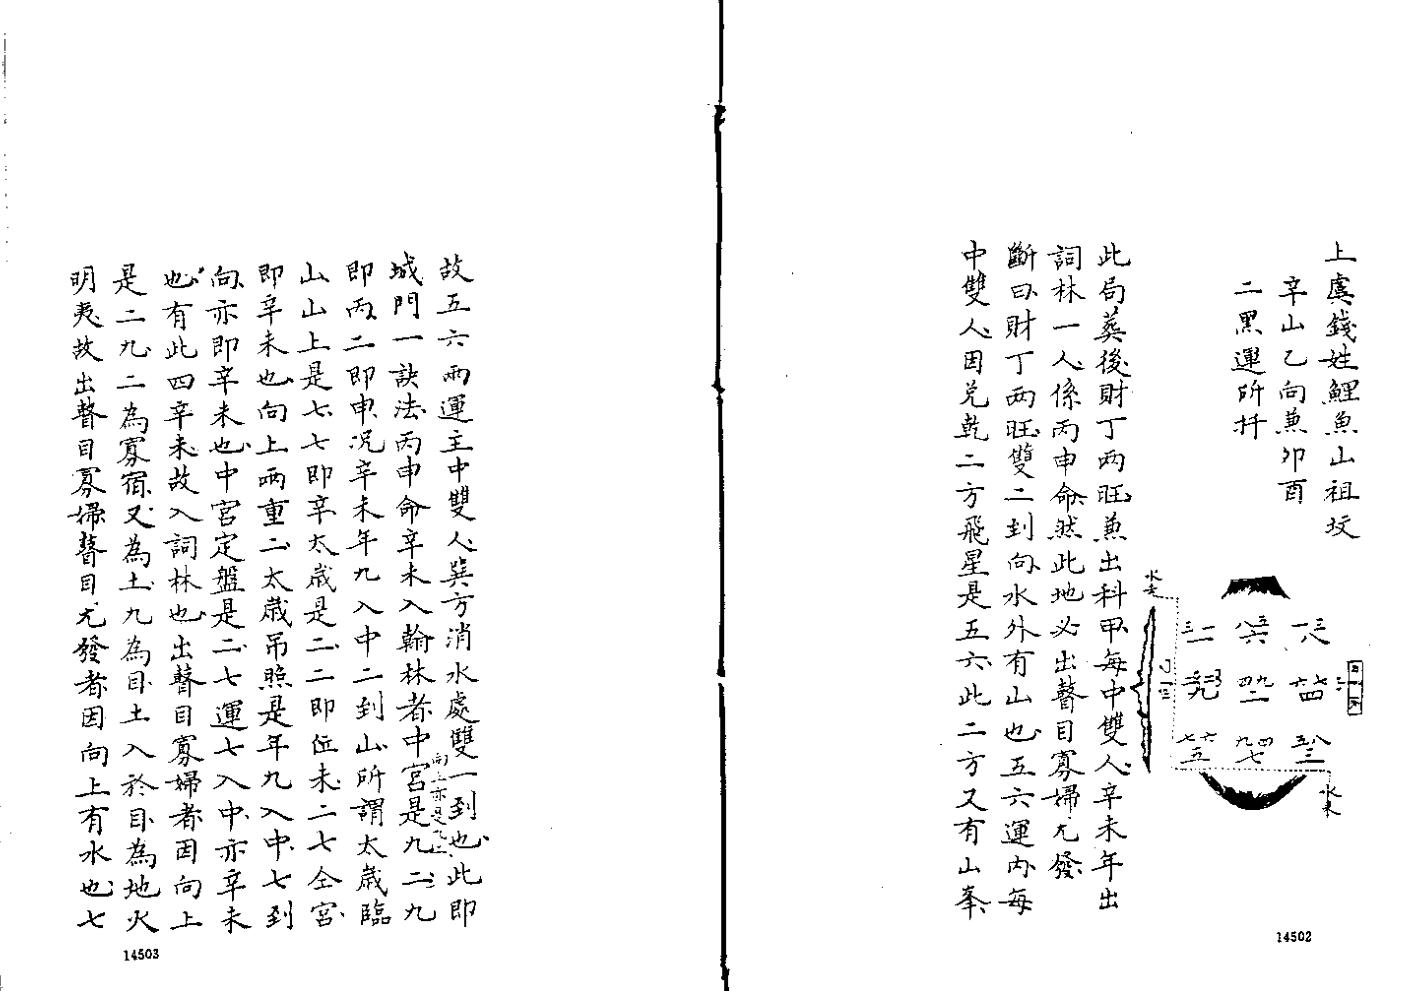 上虞錢姓鯉魚山祖坟
辛山乙向兼卯酉
二黑運所扦
水去
水来
一三八
五八六
三一二
六七四
四九二
七六五
九四七
五八三
此局葬後財丁兩旺兼出科甲每中雙人辛未年出
詞林一人係丙申命然此地必出瞽目寡婦尤發
斷曰財丁兩旺雙二到向水外有山也五六運內每
中雙人因兌乾二方飛星是五六此二方又有山峯
14502
故五六兩運主中雙人巽方消水處雙一到也此即
城門一訣法丙申命辛未入翰林者中宮是九二九
向上亦是
即丙二即申況辛未年九入中二到山所謂太歲臨
山山上是七七即辛太歲是二二即位未二七仝宮
即辛未也向上兩重二太歲吊照是年九入中七到
向亦即辛未也中宮定盤是二七運七入中亦辛未
也有此四辛未故入詞林也出瞽目寡婦者因向上
是二九二為寡宿又為土九為目土入於目為地火
明夷故出瞽目寡婦瞽目尤發者因向上有水也七
14503